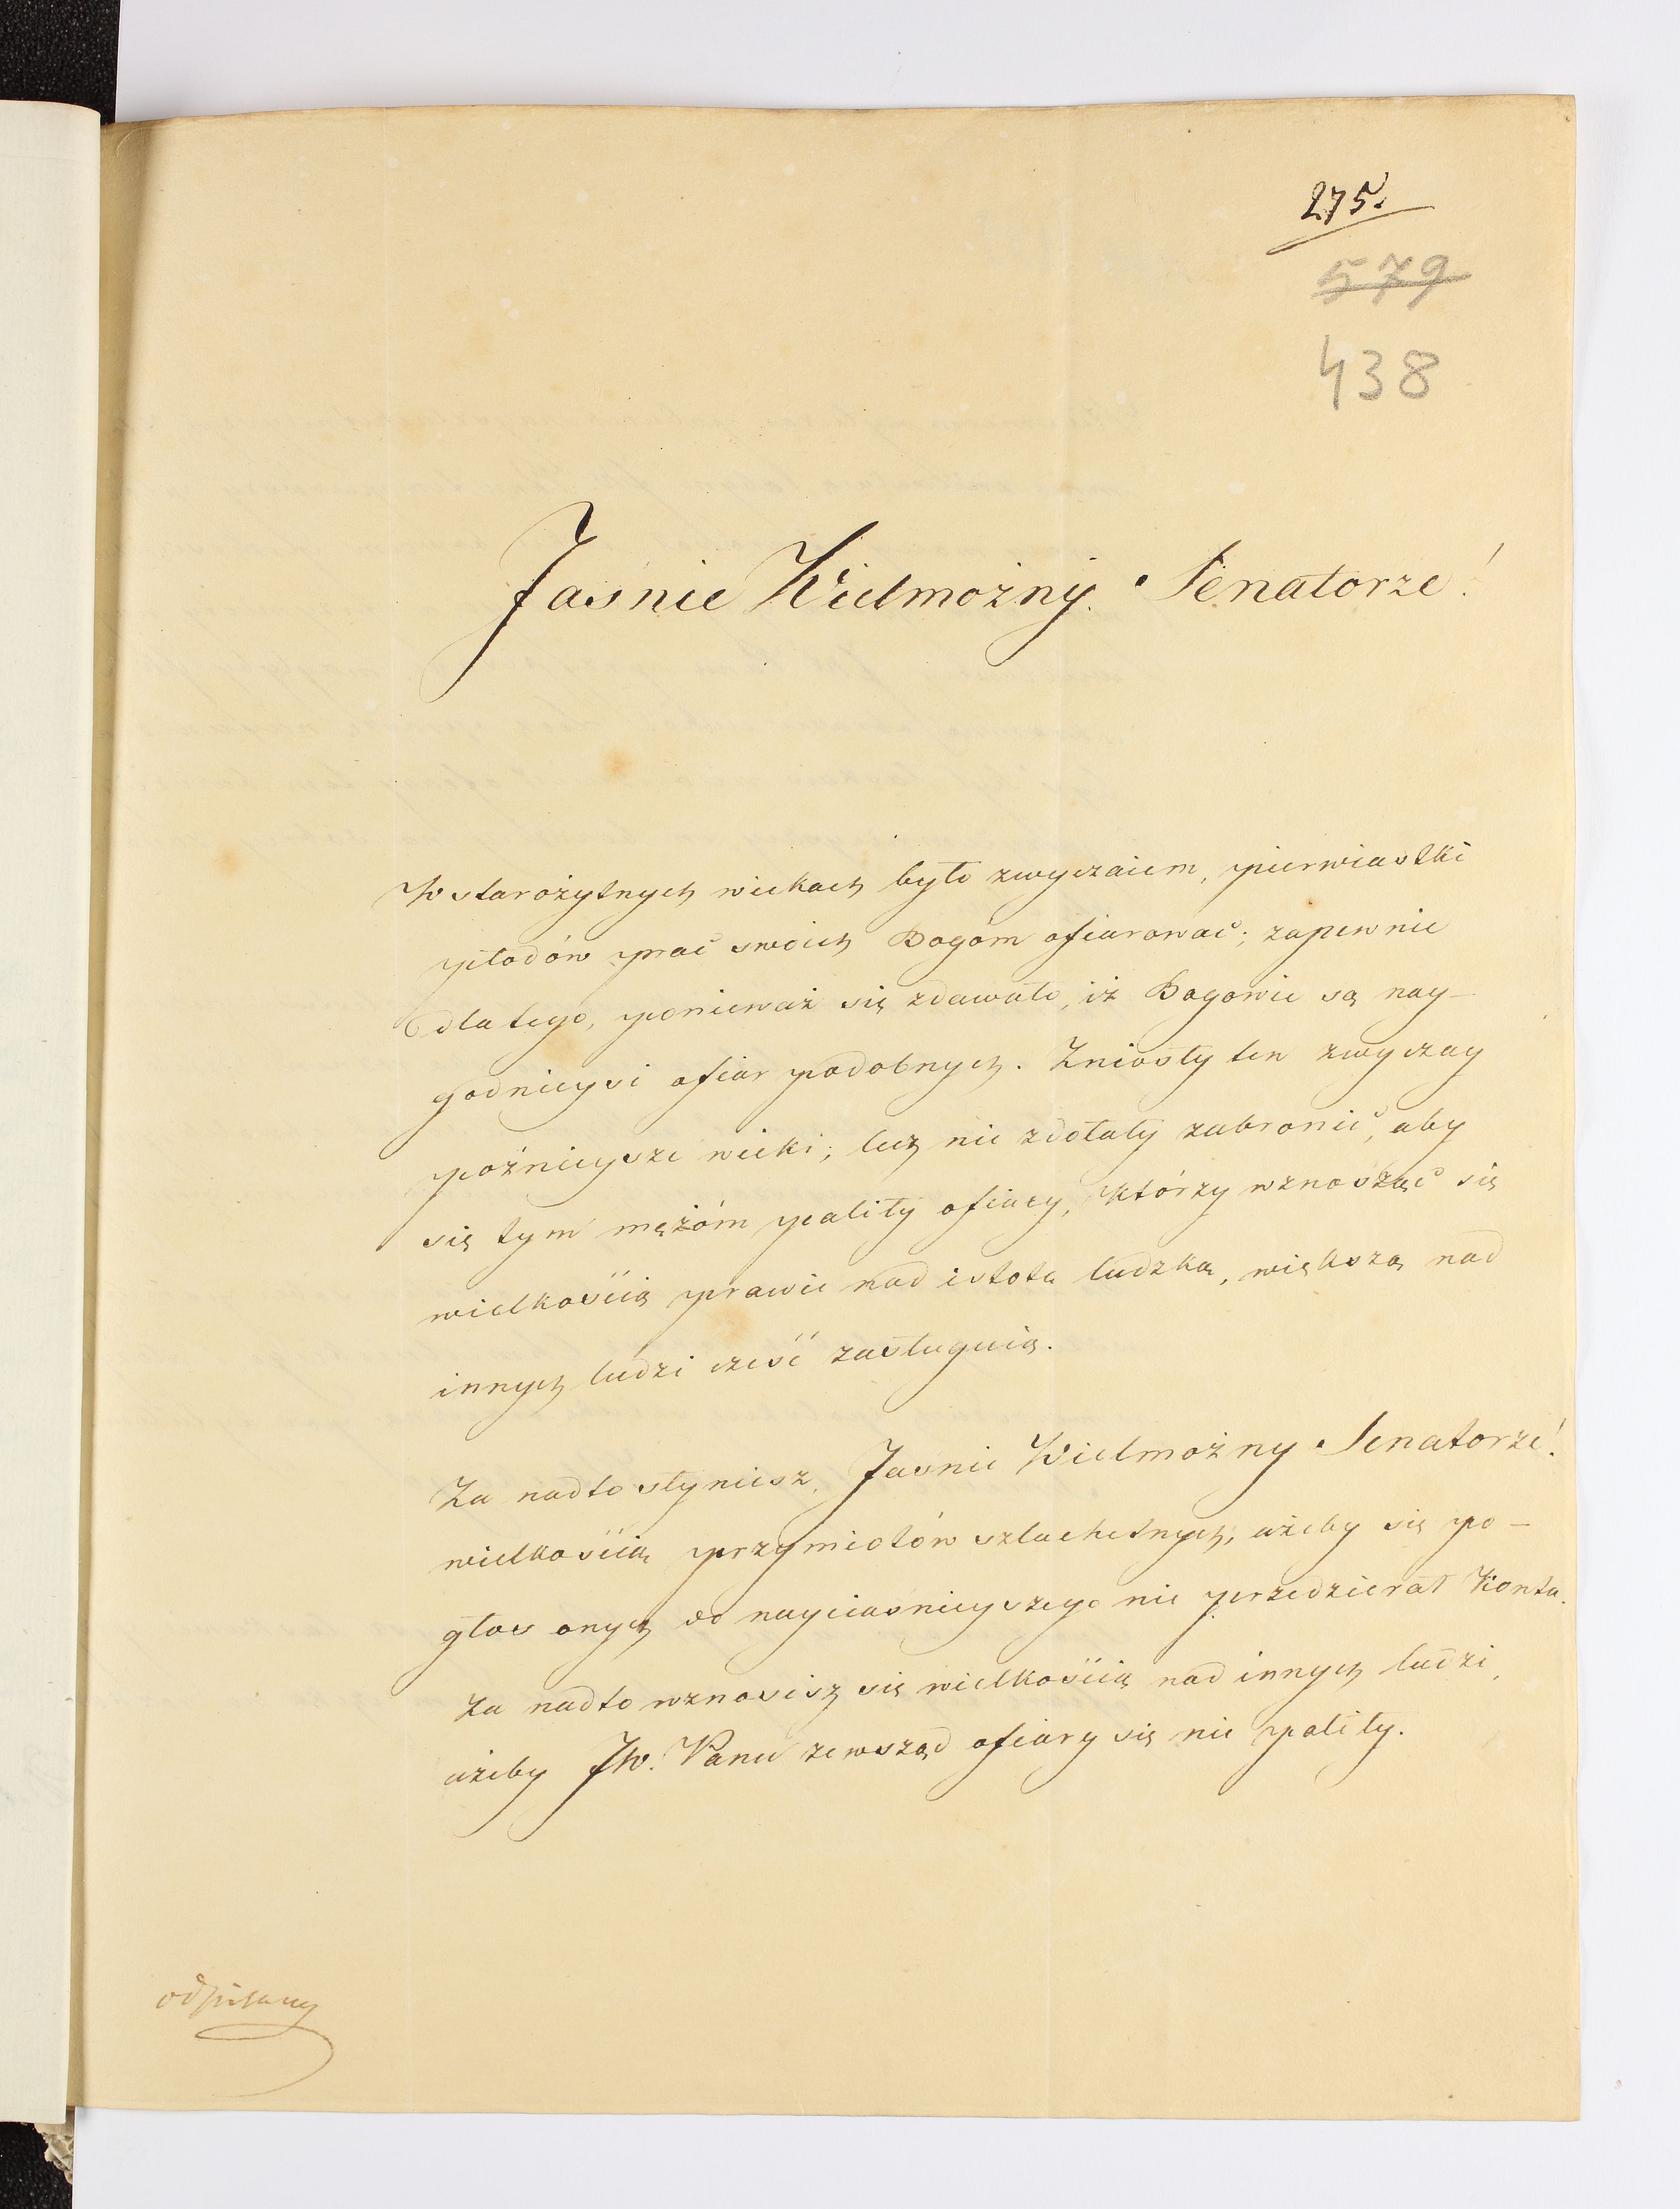 275.
579
438
Jaśnie Wielmożny Senatorze!
W starożytnych wiekach było zwyczaiem, pierwiastki
płodów prac swoich Bogóm ofiarować; zapewnie
dla tego, ponieważ się zdawało, iż Bogowie są nay-
godnieysi ofiar podobnych. Zniosły ten zwyczay
poźnieysze wieki; lecz nie zdołały zabronić, aby
się tym mężóm paliły ofiary, którzy wznosząć się
wielkością prawie nad istotę ludzką, większą nad
innych ludzi cześć zasługuią.
Za nadto słyniesz, Jasnie Wielmożny Senatorze!
wielkością przymiotów szlachetnych, ażeby się po-
głos onych do nayciaśnieyszego nie przedzierał Konta.
Za nadto wznosisz się wielkością nad innych ludzi,
ażeby JW. Panu zewsząd ofiary się nie paliły.
odpisany